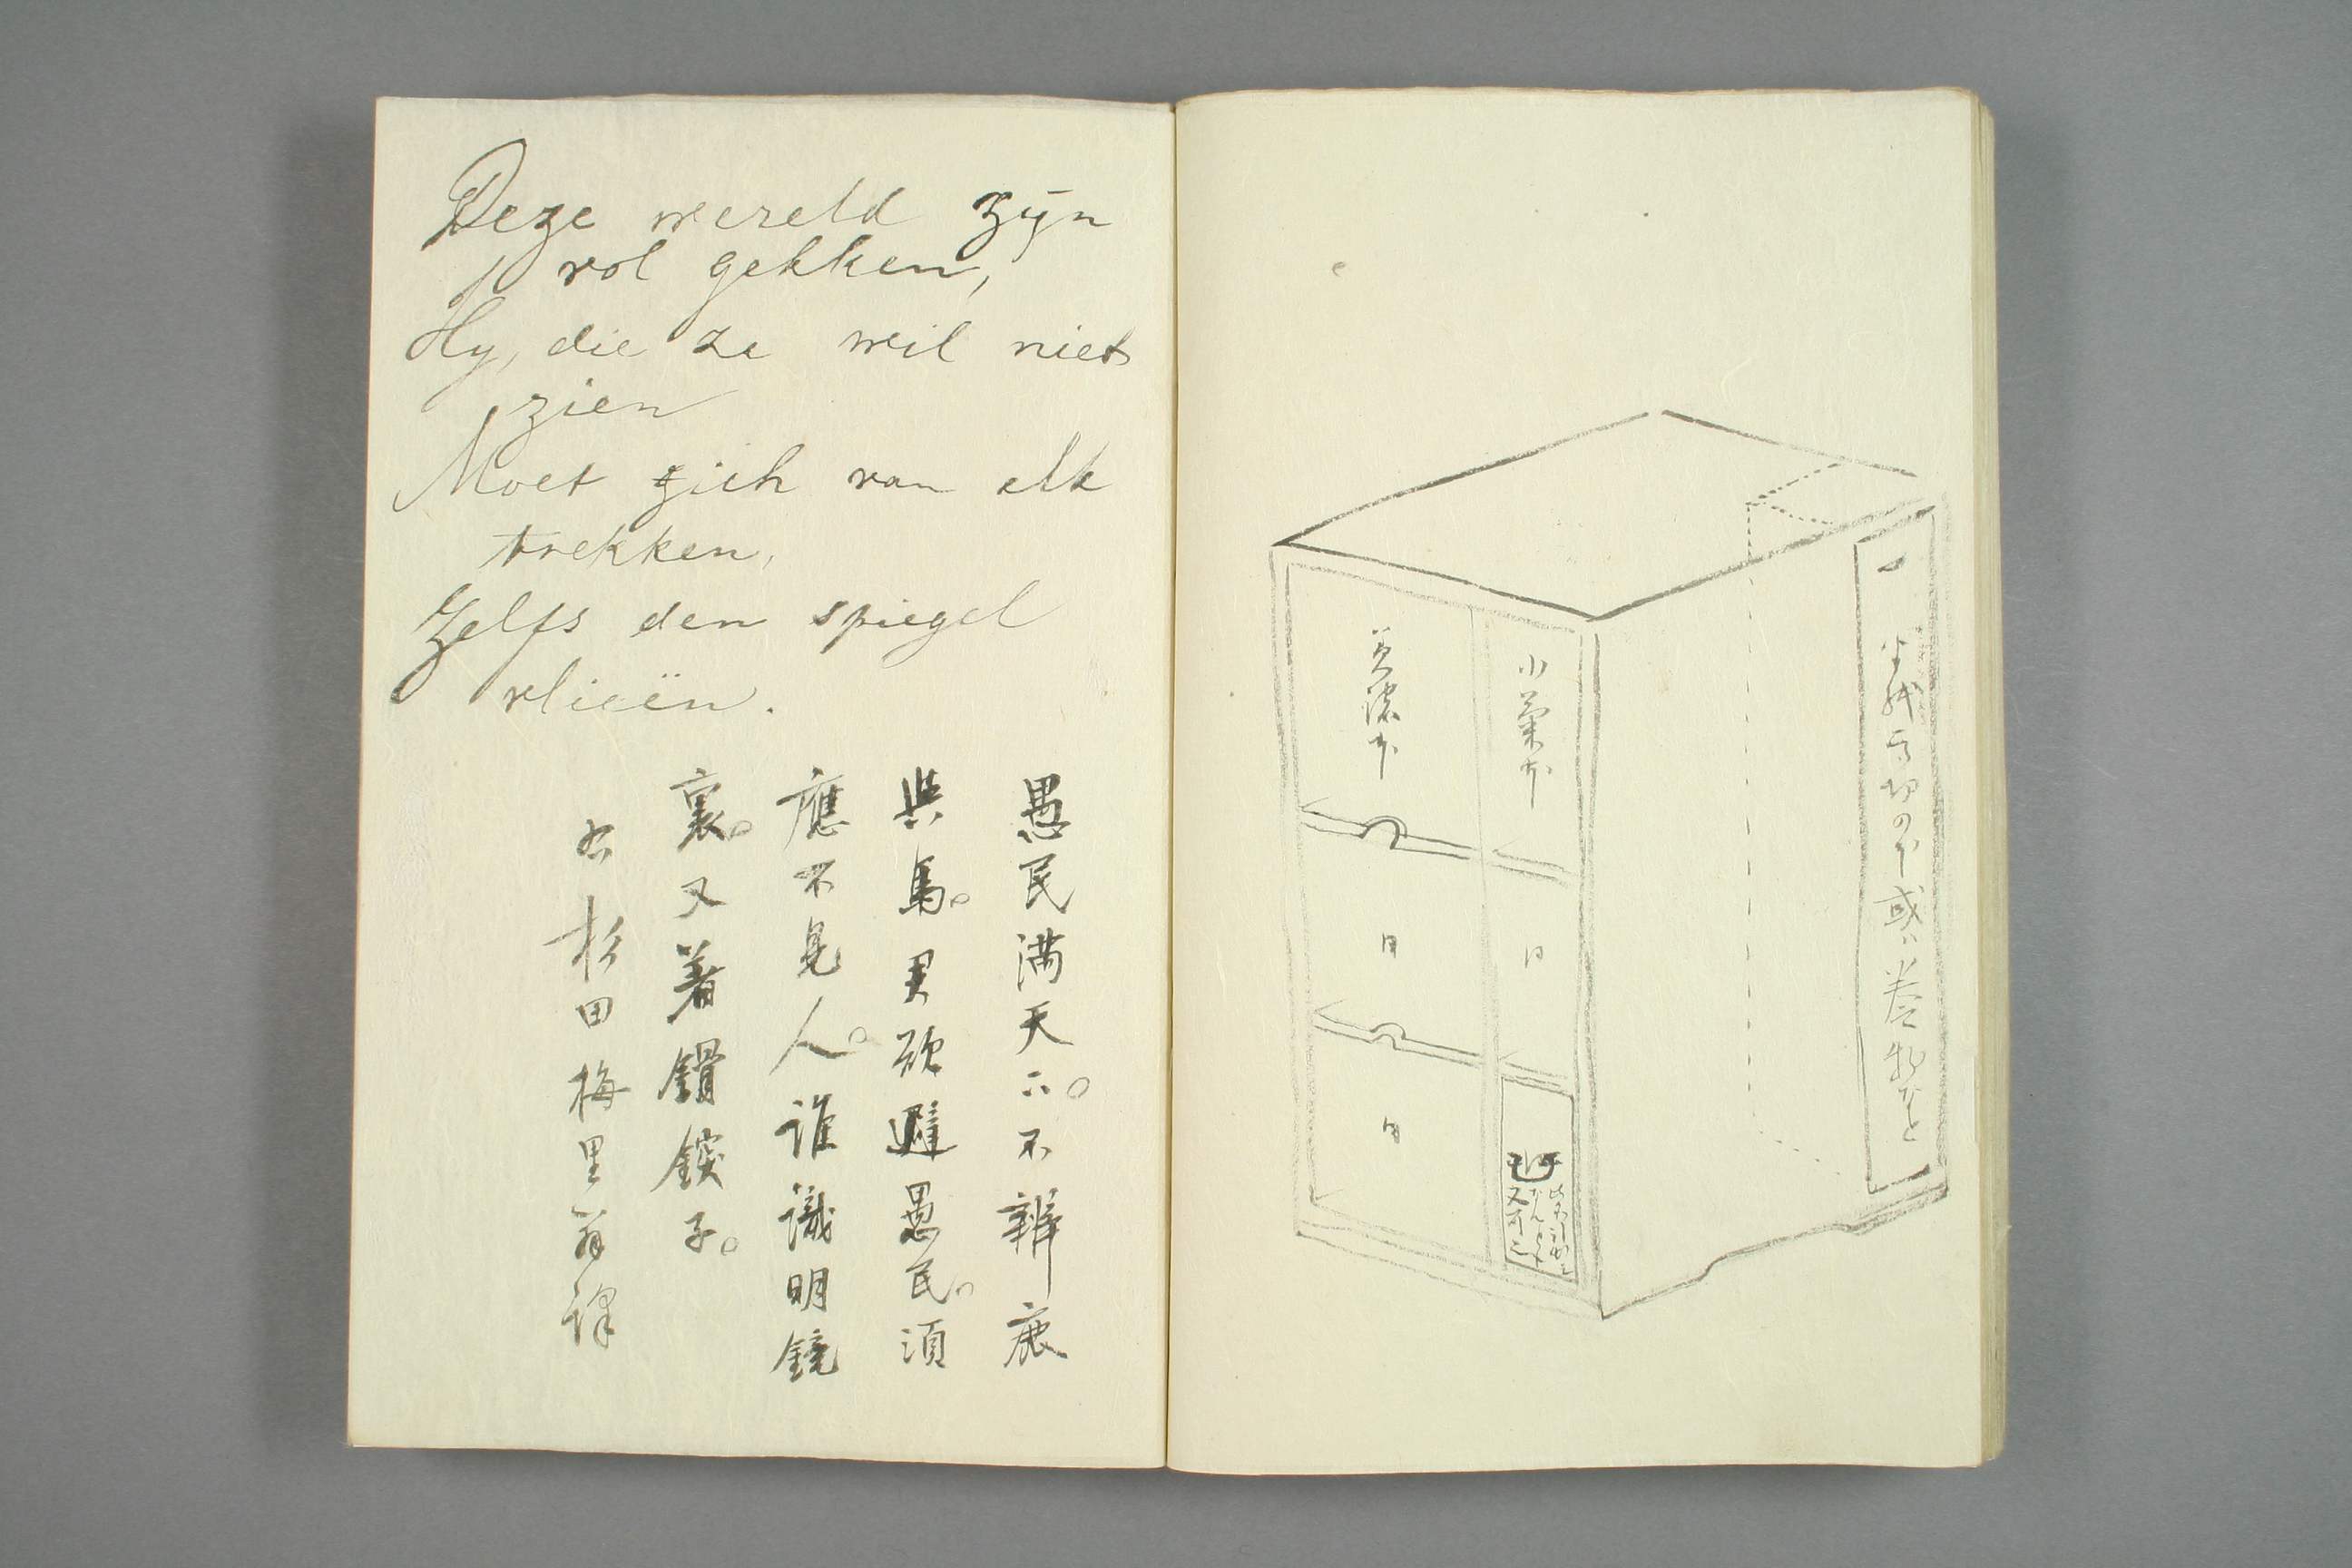 Deze wereld zyn
vol gekken,
Hy, die ze wil niet
zien
Moet zich van elk
trekken,
Zelfs den spiegel
vlieën.
愚民満天下。不辨鹿
與馬。君欲避愚民。須
應不見人。誰識明鏡
裏。又著鑽鎫子。
右 杉田梅里翁譯
美濃本
小菊本
同
同
同
半紙四ツ切の本或ハ巻物など